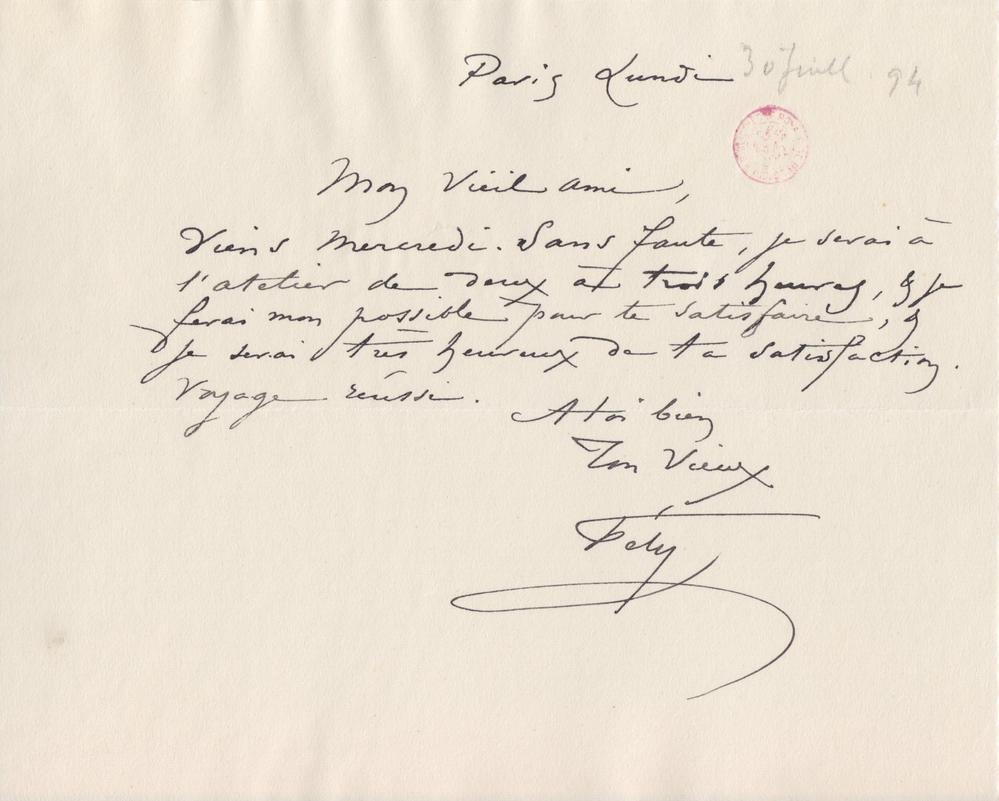 Paris Lundi 30 Juill 94
Mon Vieil ami,
Viens mercredi. Sans faute, je serai à
l'atelier de deux à trois heures, & je
ferai mon possible pour te satisfaire, &
je serai très heureux de ta satisfaction.
Voyage réussi.
A toi bien
Ton Vieux
Fély